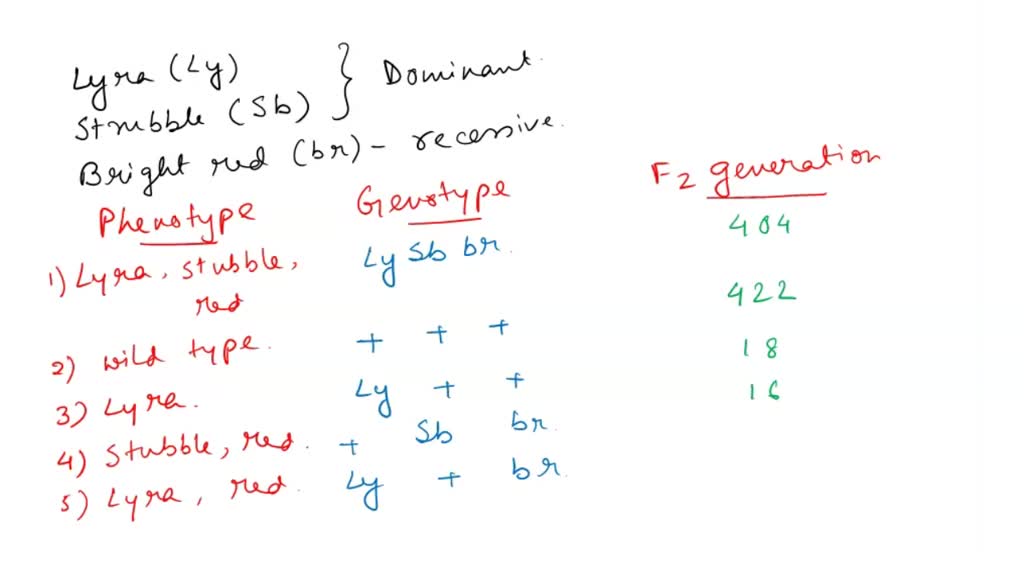 Lyra (Ly) } Dominant.
Strubble (Sb)
Bright red (br) - recessive.
Phenotype Genotype F2 generation
1) Lyra, stubble, red Ly Sb br. 404
2) wild type. + + + 422
3) Lyra. Ly + + 18
4) Stubble, red. + Sb br. 16
5) Lyra, red. Ly + br.